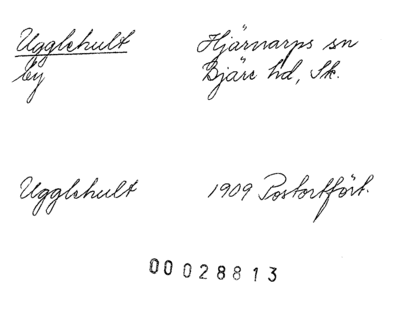 Ugglehult Hjärnarps sn
by Bjäre hd, Sk.
Ugglehult 1909 Postortfört.
00028813